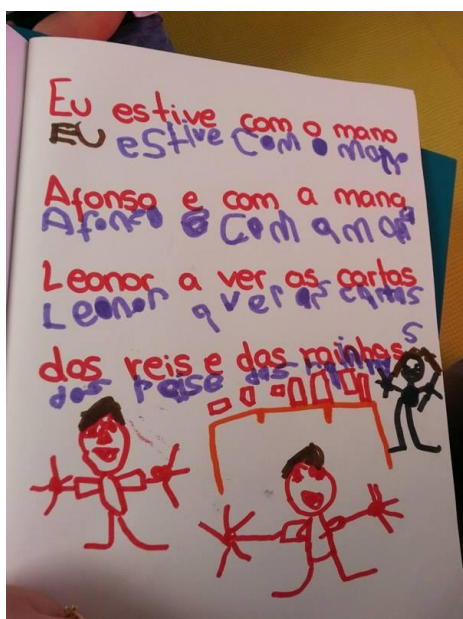 Eu estive com o mano
EU estive com o mano
Afonso e com a mana
Afonso e com a mana
Leonor a ver as cartas
Leonor a ver as cartas
dos reis e das rainhas
dos reise das
s